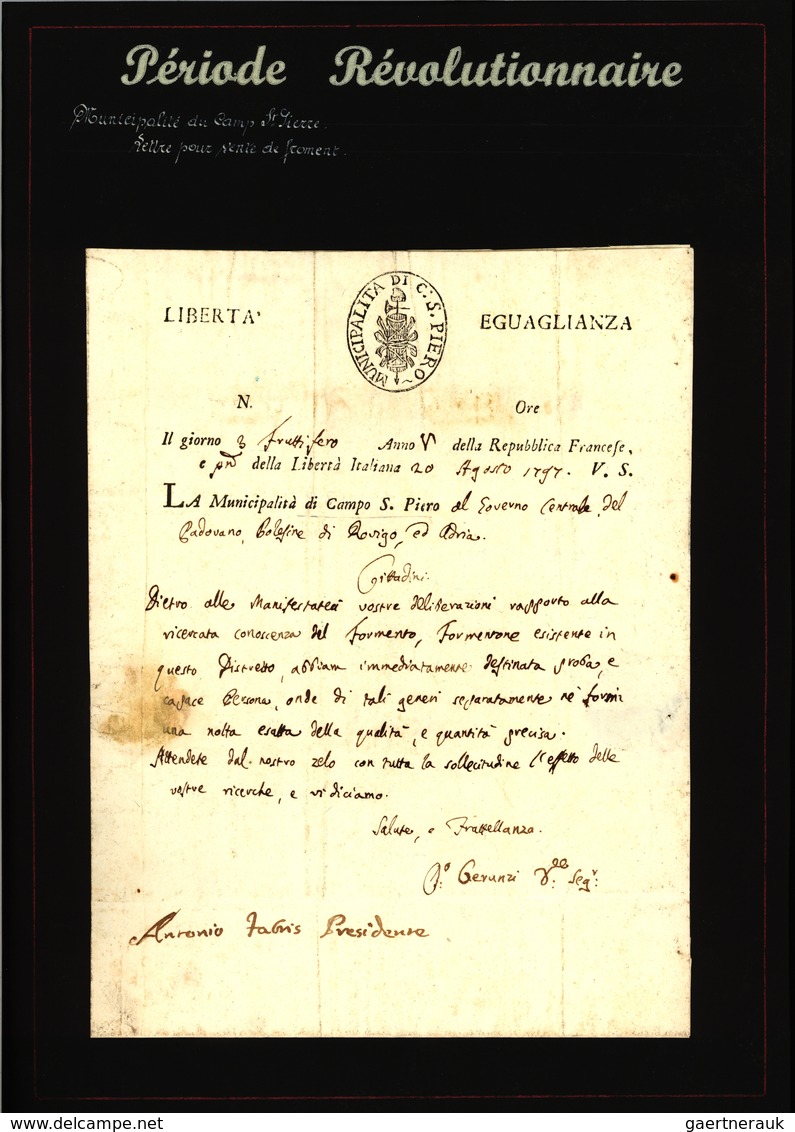 Période Révolutionnaire
Municipalité du Camp St Pierre.
Lettre pour vente de froment.
MUNICIPALITA DI C. S. PIERO
LIBERTA'
EGUAGLIANZA
N.
Ore
Il giorno 3 Fruttifero Anno V della Repubblica Francese,
e pmo della Libertà Italiana 20 Agosto 1797. V. S.
LA Municipalità di Campo S. Piero al Governo Centrale del
Padovano, Polesine di Rovigo, ed Adria.
Cittadini.
Dietro alle Manifestateci vostre deliberazioni rapporto alla
ricercata conoscenza del formento, formentone esistente in
questo Distretto, abbiam immediatamente destinata proba, e
capace Persona, onde di tali generi separatamente ne formi
una notta esatta della qualità, e quantità precisa.
Attendete dal nostro zelo con tutta la sollecitudine l'effetto delle
vostre ricerche, e vi diciamo.
Salute, e Frattellanza.
Gerunzi Segr.
Antonio Fabris Presidente
delcampe.net
gaertnerauk